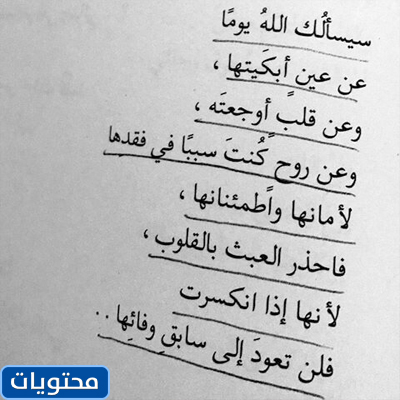 سيسألُك اللهُ يومًا
عن عين أبكَيتها ،
وعن قلبً أوجعتَه ،
وعن روح كُنتَ سببًا في فقدها
لأمانها واطمئنانها ،
فاحذر العبث بالقلوب ،
لأنها إذا انكسرت
فلن تعودَ إلى سابقِ وفائِها ..
محتويات